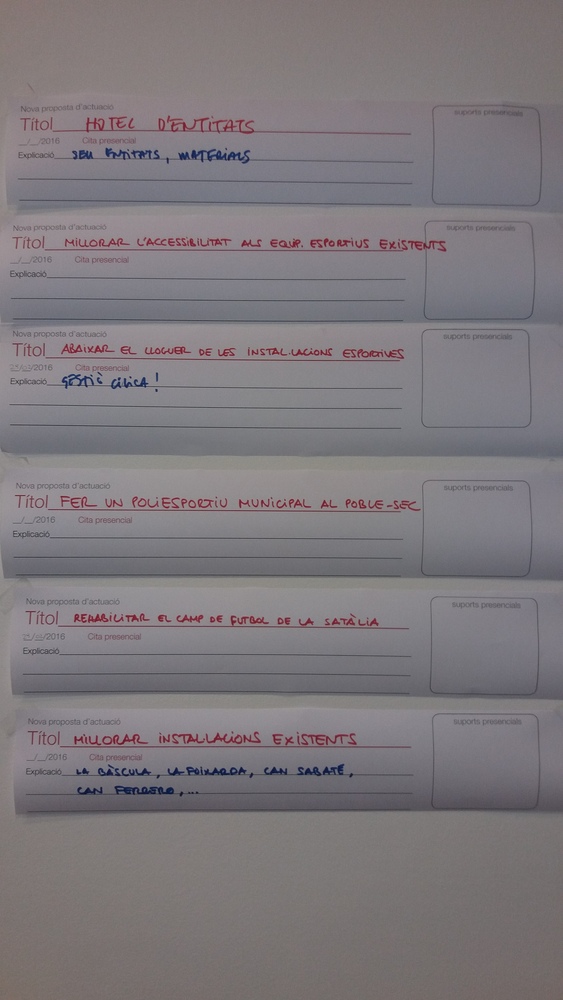 Nova proposta d'actuació
suports presencials
Títol HOTEL D'ENTITATS
__/__/2016 Cita presencial
Explicació SEU ENTITATS, MATERIALS
Nova proposta d'actuació
suports presencials
Títol MILLORAR L'ACCESSIBILITAT ALS EQUIP. ESPORTIUS EXISTENTS
__/__/2016 Cita presencial
Explicació
Nova proposta d'actuació
suports presencials
Títol ABAIXAR EL LLOGUER DE LES INSTAL.LACIONS ESPORTIVES
__/__/2016 Cita presencial
Explicació GESTIÓ CÍVICA!
Nova proposta d'actuació
suports presencials
Títol FER UN POLIESPORTIU MUNICIPAL AL POBLE-SEC
__/__/2016 Cita presencial
Explicació
Nova proposta d'actuació
suports presencials
Títol REHABILITAR EL CAMP DE FUTBOL DE LA SATÀLIA
__/__/2016 Cita presencial
Explicació
Nova proposta d'actuació
suports presencials
Títol MILLORAR INSTAL.LACIONS EXISTENTS
__/__/2016 Cita presencial
Explicació LA BÀSCULA, LA FOIXARDA, CAN SABATÉ,
CAN FERRERO,...